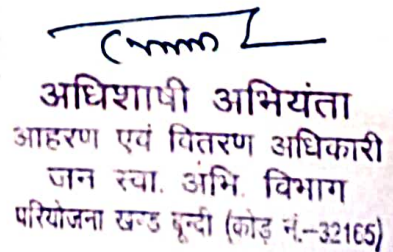 अधिशाषी अभियंता
आहरण एवं वितरण अधिकारी
जन स्वा. अभि. विभाग
परियोजना खण्ड बून्दी (कोड नं.-32165)